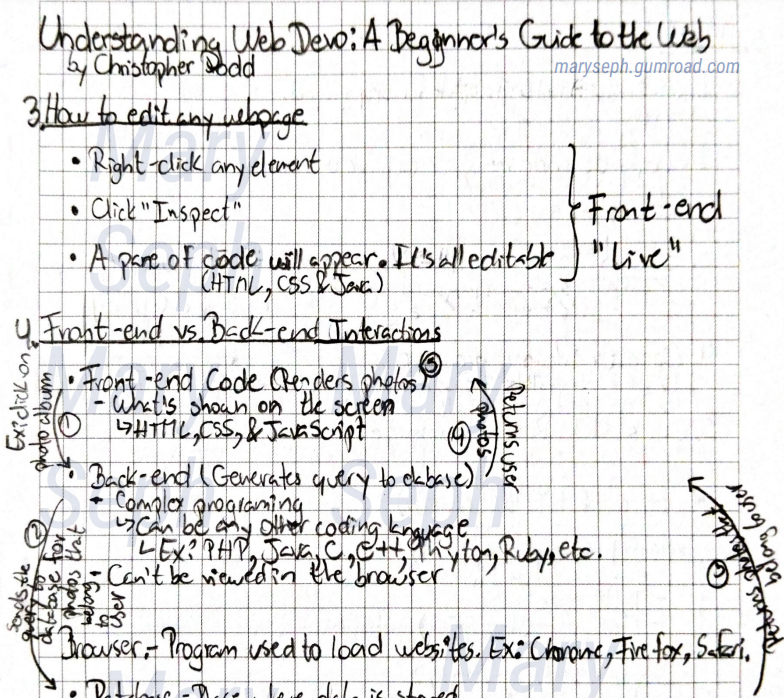 Understanding Web Devo: A Begginner's Guide to the Web
by Christopher Dodd
maryseph.gumroad.com
3. How to edit any webpage
• Right-click any element
• Click "Inspect"
• A pane of code will appear. It's all editable
(HTML, CSS & Java)
Front-end
"Live"
4. Front-end vs. Back-end Interactions
Ex: click on
photo album
①
• Front-end Code (Renders photos) ⑤
- What's shown on the screen
↳ HTML, CSS, & JavaScript
④
Returns user
photos
• Back-end (Generates query to dabase)
- Complex programing
↳ Can be any other coding language
↳ Ex: PHP, Java, C, C++, Phyton, Ruby, etc.
- Can't be viewed in the browser
②
Sends the
query to
database for
photos that
belong
to
user
③
Returns photos that
belong to user
Browser.- Program used to load websites. Ex: Chorome, Firefox, Safari.
Mary
Seph
Mary
Mary
Seph
Seph
Mary
Mary